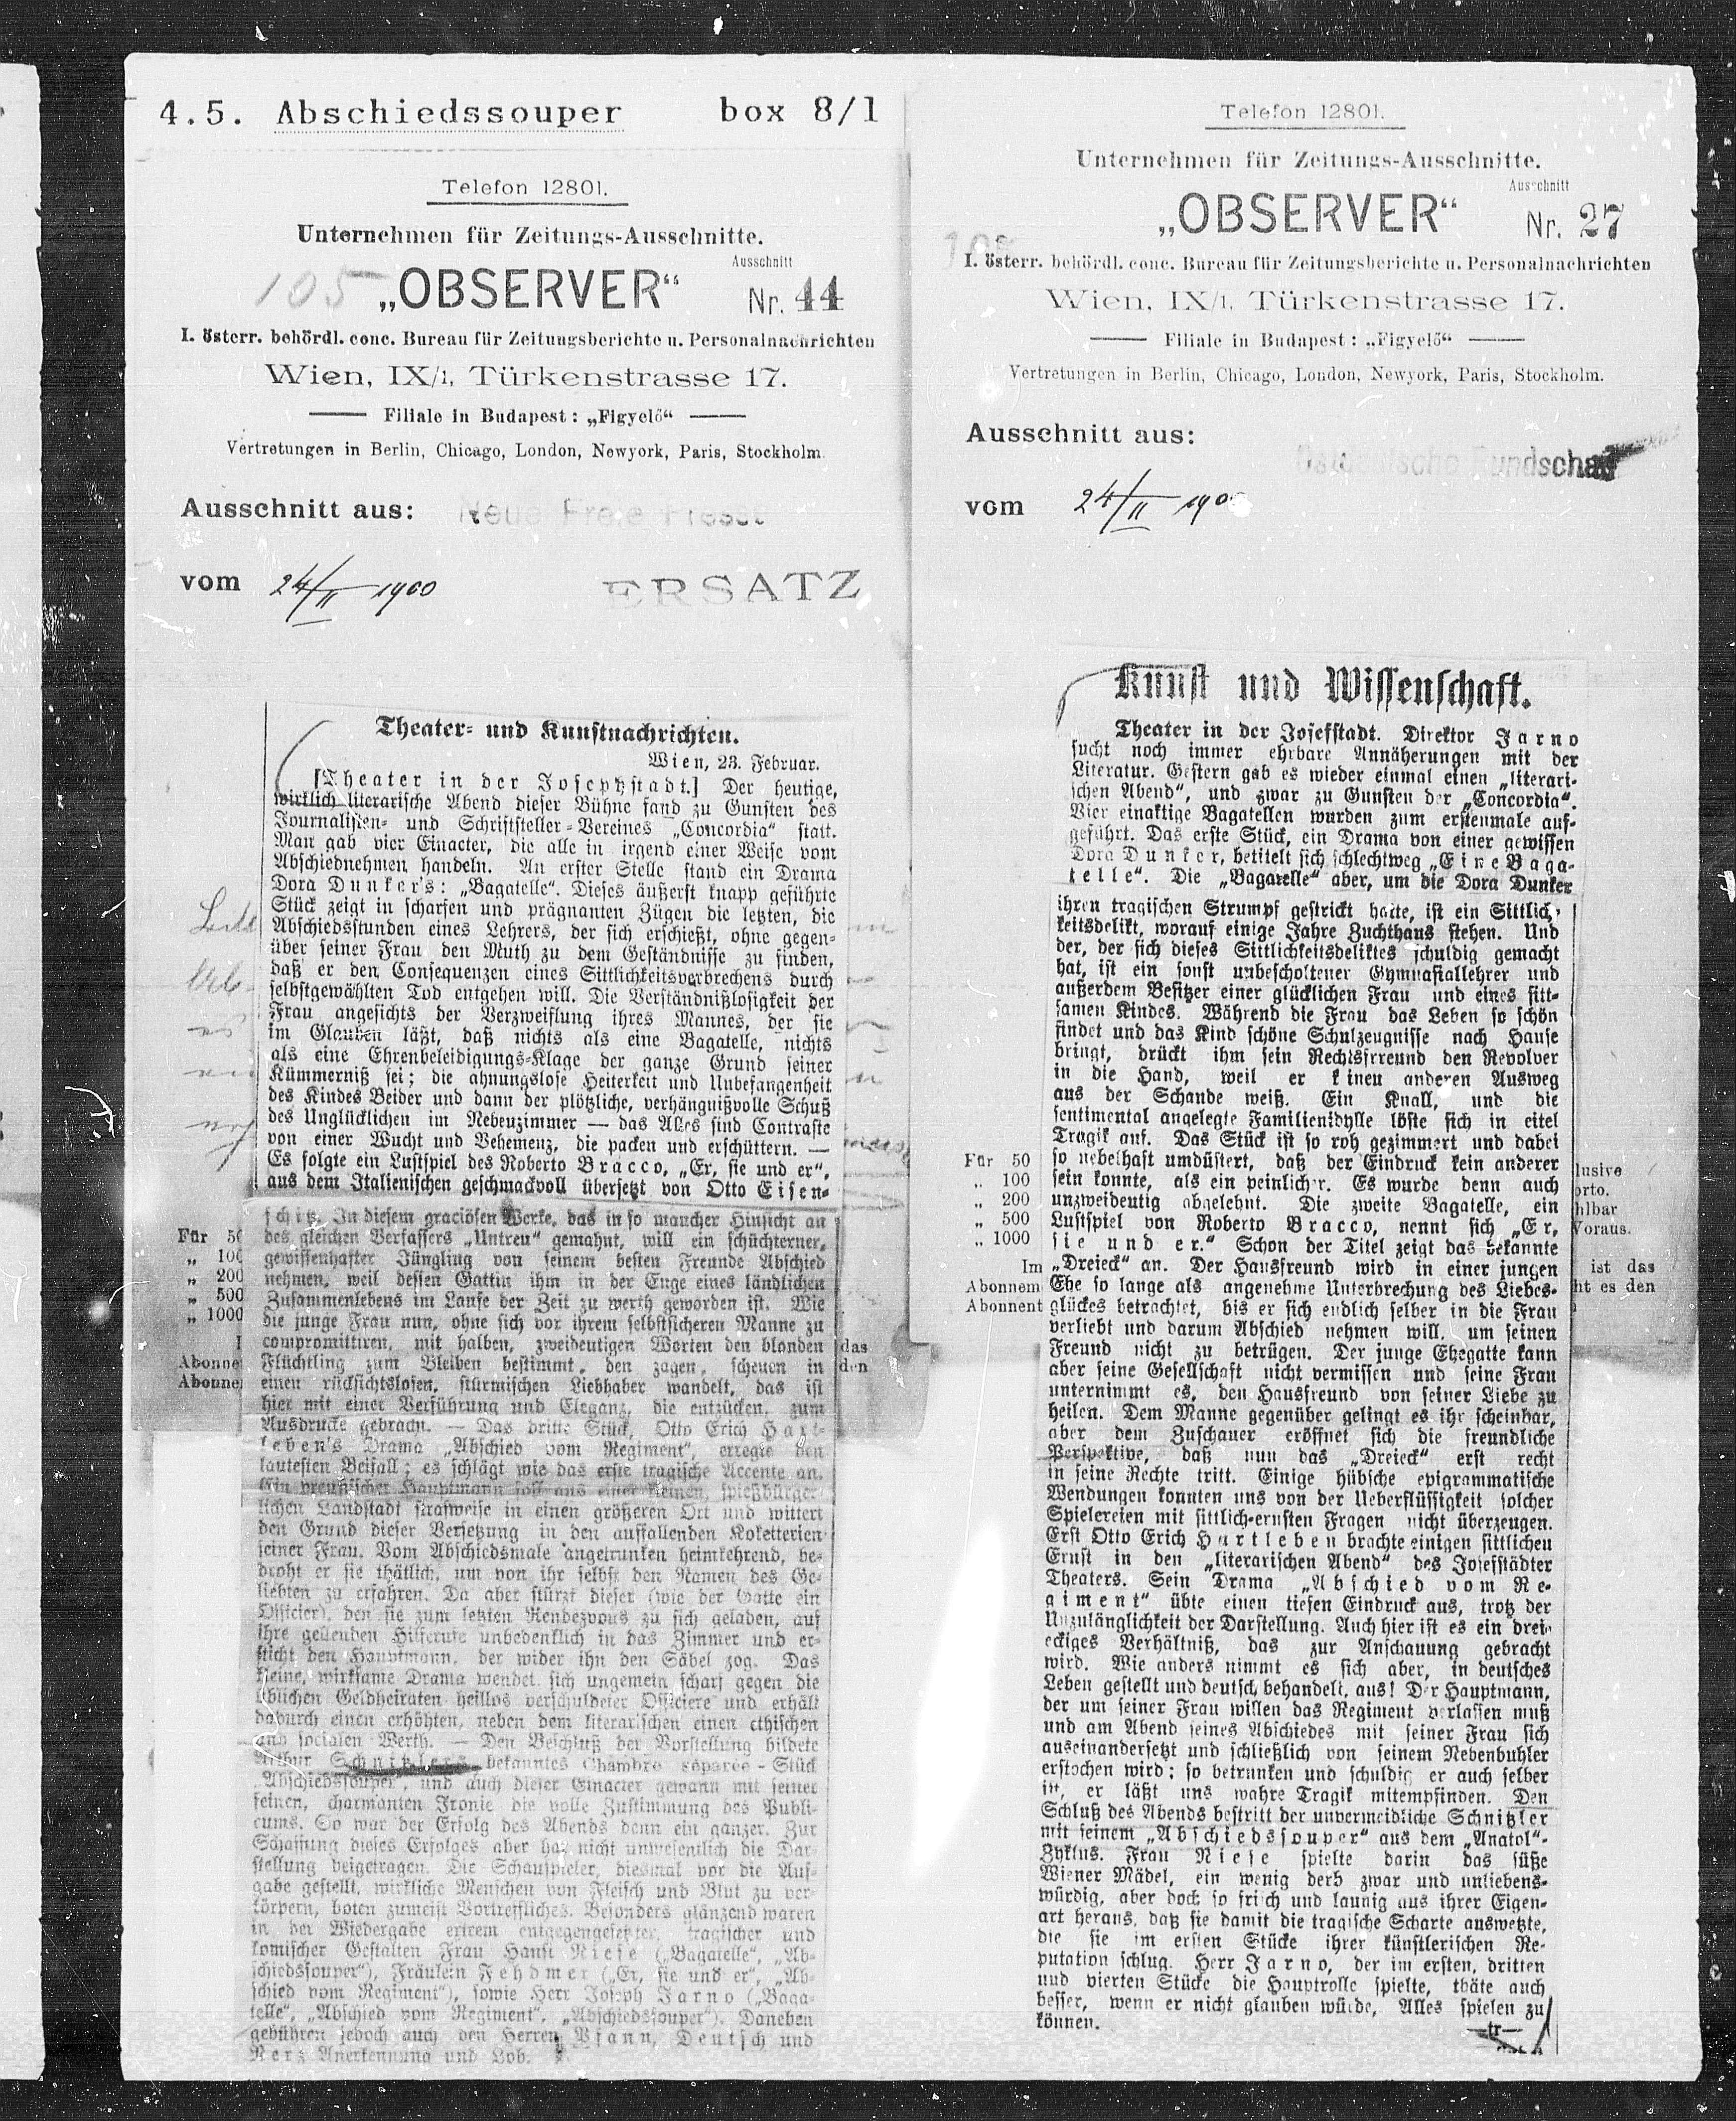 4.5. Abschiedssouper box 8/1
Telefon 12801.
Unternehmen für Zeitungs-Ausschnitte.
105 „OBSERVER“ Ausschnitt Nr. 44
I. österr. behördl. conc. Bureau für Zeitungsberichte u. Personalnachrichten
Wien, IX/1, Türkenstrasse 17.
Filiale in Budapest: „Figyelő“
Vertretungen in Berlin, Chicago, London, Newyork, Paris, Stockholm.
Ausschnitt aus: Neue Freie Presse
vom 24/II 1900
ERSATZ
Theater- und Kunstnachrichten.
Wien, 23. Februar.
[Theater in der Josephstadt.] Der heutige,
wirklich literarische Abend dieser Bühne fand zu Gunsten des
Journalisten- und Schriftsteller-Vereines „Concordia“ statt.
Man gab vier Einacter, die alle in irgend einer Weise vom
Abschiednehmen handeln. An erster Stelle stand ein Drama
Dora Dunker's: „Bagatelle“. Dieses äußerst knapp geführte
Stück zeigt in scharfen und prägnanten Zügen die letzten, die
Abschiedsstunden eines Lehrers, der sich erschießt, ohne gegen-
über seiner Frau den Muth zu dem Geständnisse zu finden,
daß er den Consequenzen eines Sittlichkeitsverbrechens durch
selbstgewählten Tod entgehen will. Die Verständnißlosigkeit der
Frau angesichts der Verzweiflung ihres Mannes, der sie
im Glauben läßt, daß nichts als eine Bagatelle, nichts
als eine Ehrenbeleidigungs-Klage der ganze Grund seiner
Kümmerniß sei; die ahnungslose Heiterkeit und Unbefangenheit
des Kindes Beider und dann der plötzliche, verhängnißvolle Schuß
des Unglücklichen im Nebenzimmer — das Alles sind Contraste
von einer Wucht und Vehemenz, die packen und erschüttern. —
Es folgte ein Lustspiel des Roberto Bracco, „Er, sie und er“,
aus dem Italienischen geschmackvoll übersetzt von Otto Eisen-
schitz. In diesem graciösen Werke, das in so mancher Hinsicht an
des gleichen Verfassers „Untreu“ gemahnt, will ein schüchterner,
gewissenhafter Jüngling von seinem besten Freunde Abschied
nehmen, weil dessen Gattin ihm in der Enge eines ländlichen
Zusammenlebens im Laufe der Zeit zu werth geworden ist. Wie
die junge Frau nun, ohne sich vor ihrem selbstsicheren Manne zu
compromittiren, mit halben, zweideutigen Worten den blonden
Flüchtling zum Bleiben bestimmt, den zagen, scheuen in
einen rücksichtslosen, stürmischen Liebhaber wandelt, das ist
hier mit einer Verführung und Eleganz, die entzücken, zum
Ausdrucke gebracht. — Das dritte Stück, Otto Erich Hart-
leben's Drama „Abschied vom Regiment“, erregte den
lautesten Beifall; es schlägt wie das erste tragische Accente an.
Ein preußischer Hauptmann soll aus einer kleinen, spießbürger-
lichen Landstadt strafweise in einen größeren Ort und wittert
den Grund dieser Versetzung in den auffallenden Koketterien
seiner Frau. Vom Abschiedsmale angetrunken heimkehrend, be-
droht er sie thätlich, um von ihr selbst den Namen des Ge-
liebten zu erfahren. Da aber stürzt dieser (wie der Gatte ein
Officier), den sie zum letzten Rendezvous zu sich geladen, auf
ihre gellenden Hilferufe unbedenklich in das Zimmer und er-
sticht den Hauptmann, der wider ihn den Säbel zog. Das
kleine, wirksame Drama wendet sich ungemein scharf gegen die
üblichen Geldheiraten heillos verschuldeter Officiere und erhält
dadurch einen erhöhten, neben dem literarischen einen ethischen
und socialen Werth. — Den Beschluß der Vorstellung bildete
Arthur Schnitzler's bekanntes Chambre séparée-Stück
„Abschiedssouper“, und auch dieser Einacter gewann mit seiner
feinen, charmanten Ironie die volle Zustimmung des Publi-
cums. So war der Erfolg des Abends denn ein ganzer. Zur
Schaffung dieses Erfolges aber hat nicht unwesentlich die Dar-
stellung beigetragen. Die Schauspieler, diesmal vor die Auf-
gabe gestellt, wirkliche Menschen von Fleisch und Blut zu ver-
körpern, boten zumeist Vortreffliches. Besonders glänzend waren
in der Wiedergabe extrem entgegengesetzter, tragischer und
komischer Gestalten Frau Hansi Niese („Bagatelle“, „Ab-
schiedssouper“), Fräulein Fehdmer („Er, sie und er“, „Ab-
schied vom Regiment“), sowie Herr Joseph Jarno („Baga-
telle“, „Abschied vom Regiment“, „Abschiedssouper“). Daneben
gebühren jedoch auch den Herren Pfann, Deutsch und
Nerz Anerkennung und Lob.
Für 50
„ 100
„ 200
„ 500
„ 1000
das
Abonne den
Abonne
Telefon 12801.
Unternehmen für Zeitungs-Ausschnitte.
„OBSERVER“ Ausschnitt Nr. 27
I. österr. behördl. conc. Bureau für Zeitungsberichte u. Personalnachrichten
Wien, IX/1, Türkenstrasse 17.
Filiale in Budapest: „Figyelő“
Vertretungen in Berlin, Chicago, London, Newyork, Paris, Stockholm.
Ausschnitt aus: Ostdeutsche Rundschau
vom 24/II 190
Kunst und Wissenschaft.
Theater in der Josefstadt. Direktor Jarno
sucht noch immer ehrbare Annäherungen mit der
Literatur. Gestern gab es wieder einmal einen „literari-
schen Abend“, und zwar zu Gunsten der „Concordia“.
Vier einaktige Bagatellen wurden zum erstenmale auf-
geführt. Das erste Stück, ein Drama von einer gewissen
Dora Dunker, betitelt sich schlechtweg „Eine Baga-
telle“. Die „Bagatelle“ aber, um die Dora Dunker
ihren tragischen Strumpf gestrickt hatte, ist ein Sittlich-
keitsdelikt, worauf einige Jahre Zuchthaus stehen. Und
der, der sich dieses Sittlichkeitsdeliktes schuldig gemacht
hat, ist ein sonst unbescholtener Gymnasiallehrer und
außerdem Besitzer einer glücklichen Frau und eines sitt-
samen Kindes. Während die Frau das Leben so schön
findet und das Kind schöne Schulzeugnisse nach Hause
bringt, drückt ihm sein Rechtsfreund den Revolver
in die Hand, weil er k inen anderen Ausweg
aus der Schande weiß. Ein Knall, und die
sentimental angelegte Familienidylle löste sich in eitel
Tragik auf. Das Stück ist so roh gezimmert und dabei
so nebelhaft umdüstert, daß der Eindruck kein anderer
sein konnte, als ein peinlicher. Es wurde denn auch
unzweideutig abgelehnt. Die zweite Bagatelle, ein
Lustspiel von Roberto Bracco, nennt sich „Er,
sie und er.“ Schon der Titel zeigt das bekannte
„Dreieck“ an. Der Hausfreund wird in einer jungen
Ehe so lange als angenehme Unterbrechung des Liebes-
glückes betrachtet, bis er sich endlich selber in die Frau
verliebt und darum Abschied nehmen will, um seinen
Freund nicht zu betrügen. Der junge Ehegatte kann
aber seine Gesellschaft nicht vermissen und seine Frau
unternimmt es, den Hausfreund von seiner Liebe zu
heilen. Dem Manne gegenüber gelingt es ihr scheinbar,
aber dem Zuschauer eröffnet sich die freundliche
Perspektive, daß nun das „Dreieck“ erst recht
in seine Rechte tritt. Einige hübsche epigrammatische
Wendungen konnten uns von der Ueberflüssigkeit solcher
Spielereien mit sittlich-ernsten Fragen nicht überzeugen.
Erst Otto Erich Hartleben brachte einigen sittlichen
Ernst in den „literarischen Abend“ des Josefstädter
Theaters. Sein Drama „Abschied vom Re-
giment“ übte einen tiefen Eindruck aus, trotz der
Unzulänglichkeit der Darstellung. Auch hier ist es ein drei-
eckiges Verhältniß, das zur Anschauung gebracht
wird. Wie anders nimmt es sich aber, in deutsches
Leben gestellt und deutsch behandelt, aus! Der Hauptmann,
der um seiner Frau willen das Regiment verlassen muß
und am Abend seines Abschiedes mit seiner Frau sich
auseinandersetzt und schließlich von seinem Nebenbuhler
erstochen wird; so betrunken und schuldig er auch selber
ist, er läßt uns wahre Tragik mitempfinden. Den
Schluß des Abends bestritt der unvermeidliche Schnitzler
mit seinem „Abschiedssouper“ aus dem „Anatol“-
Zyklus. Frau Niese spielte darin das süße
Wiener Mädel, ein wenig derb zwar und unliebens-
würdig, aber doch so frisch und launig aus ihrer Eigen-
art heraus, daß sie damit die tragische Scharte auswetzte,
die sie im ersten Stücke ihrer künstlerischen Re-
putation schlug. Herr Jarno, der im ersten, dritten
und vierten Stücke die Hauptrolle spielte, thäte auch
besser, wenn er nicht glauben würde, Alles spielen zu
können. —tr—
Für 50 lusive
„ 100 orto.
„ 200 hlbar
„ 500 Voraus.
„ 1000
Im ist das
Abonnem ht es den
Abonnent